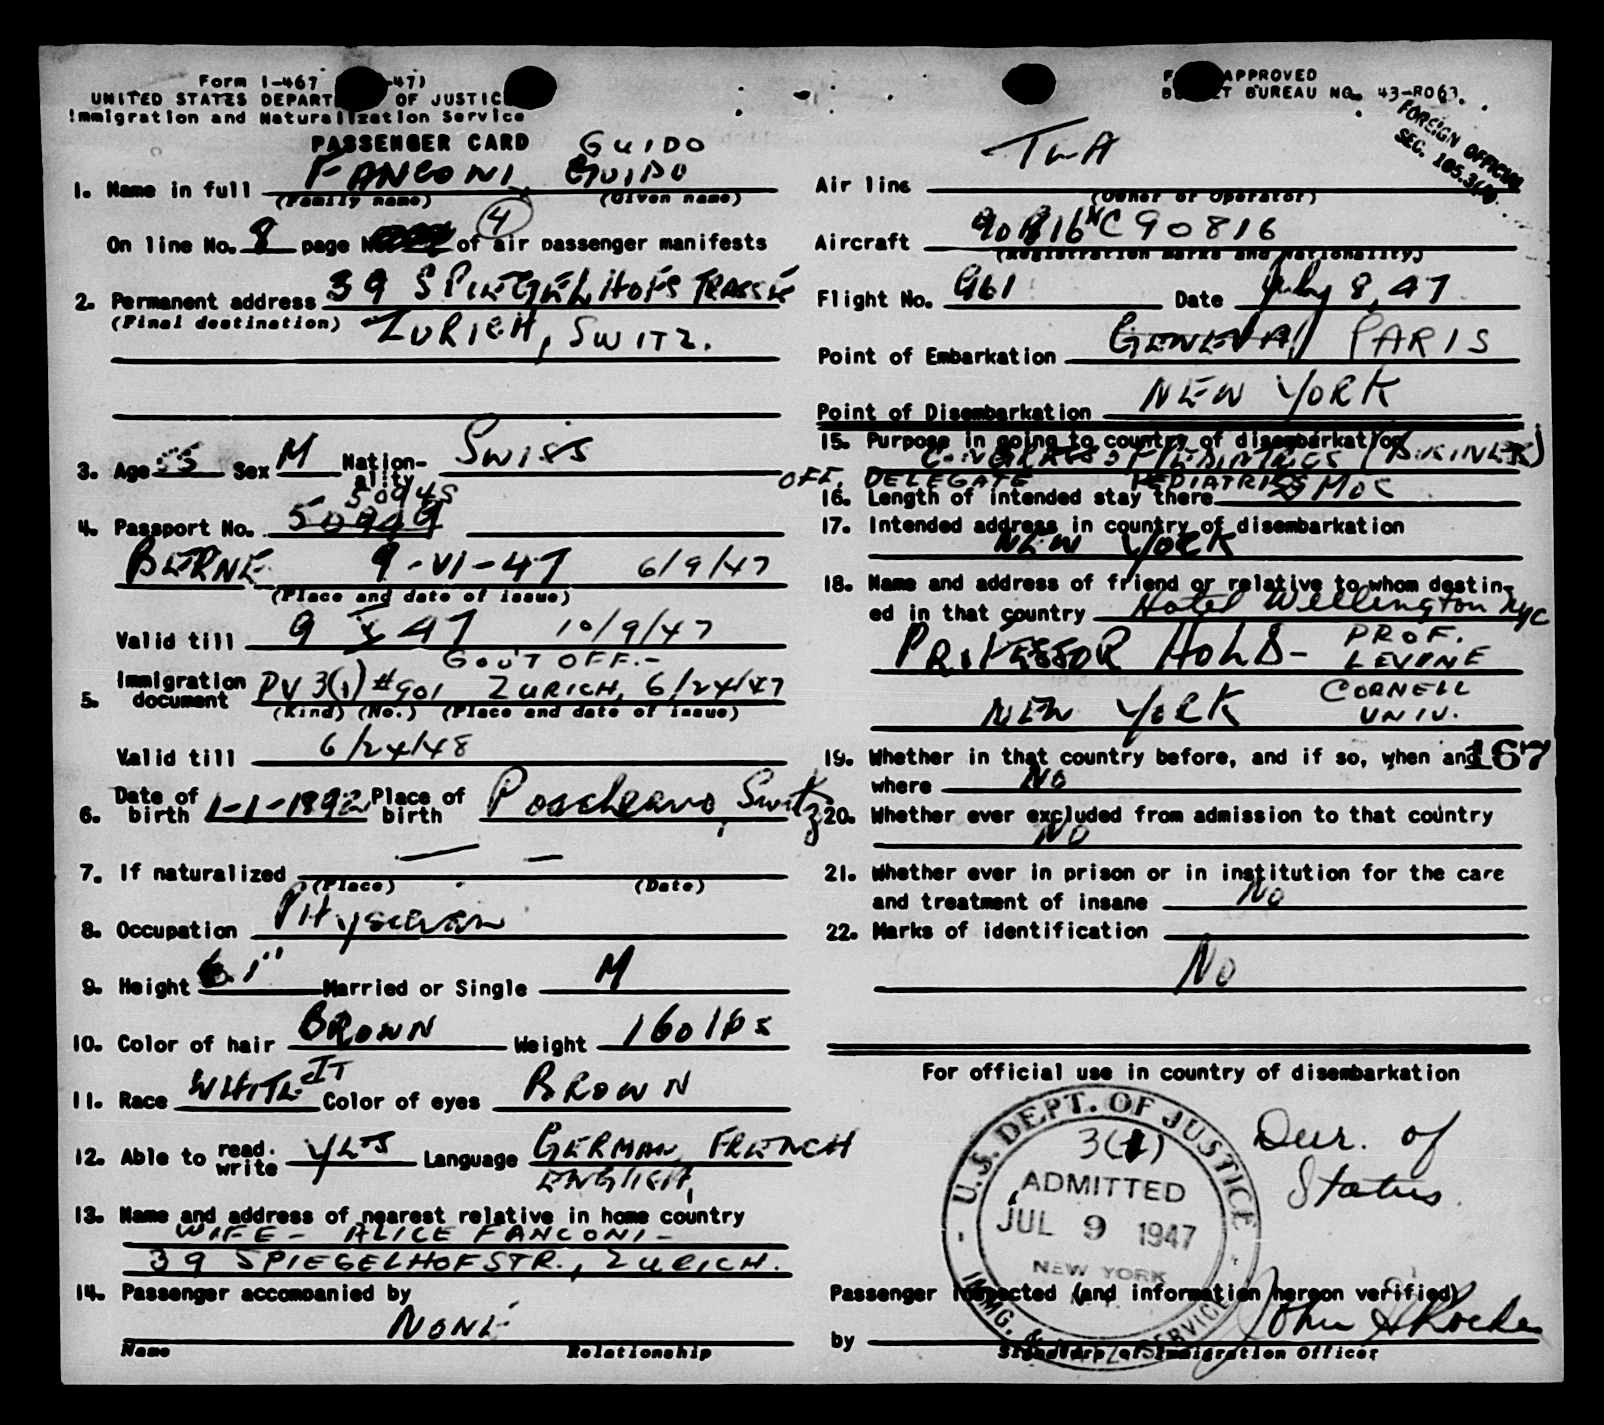 Form I-467 -47)
UNITED STATES DEPART OF JUSTICE
Immigration and Naturalization Service
PASSENGER CARD
GUIDO
1. Name in full FANCONI GUIDO
(Family name) (Given name)
4
On line No. 8 page of air passenger manifests
2. Permanent address 39 SPIEGELHOFSTRASSE
(Final destination) ZURICH, SWITZ.
3. Age 55 Sex M Nationality SWISS
50948
4. Passport No. 50949
BERNE 9-VI-47 6/9/47
(Place and date of issue)
Valid till 9 X 47 10/9/47
GOV'T OFF.-
5. Immigration document PV 3(1) #901 ZURICH, 6/24/47
(Kind) (No.) (Place and date of issue)
Valid till 6/24/48
6. Date of birth 1-1-1892 Place of birth Poschiavo, Switz
7. If naturalized — —
(Place) (Date)
8. Occupation PHysician
9. Height 6.1" Married or Single M
10. Color of hair BROWN Weight 160 lbs
11. Race WHITE IT Color of eyes BROWN
12. Able to read. write YES Language GERMAN, FRENCH
ENGLISH,
13. Name and address of nearest relative in home country
WIFE - ALICE FANCONI -
39 SPIEGELHOFSTR., ZURICH.
14. Passenger accompanied by
NONE
Name Relationship
APPROVED
BUREAU NO. 43-R063.
FOREIGN OFFICIAL
SEC. 105.3
Air line TWA
(Owner or Operator)
Aircraft 90816 NC 90816
(Registration marks and Nationality)
Flight No. 961 Date July 8, 47
Point of Embarkation GENEVA PARIS
Point of Disembarkation NEW YORK
15. Purpose in going to country of disembarkation
CONGRESS OF PEDIATRICS
OFF. DELEGATE PEDIATRICS
16. Length of intended stay there
17. Intended address in country of disembarkation
NEW YORK
18. Name and address of friend or relative to whom destin-
ed in that country Hotel Wellington NYC
PROFESSOR HOLD- PROF.
LEVINE
NEW YORK CORNELL
UNIV.
19. Whether in that country before, and if so, when and 167
where NO
20. Whether ever excluded from admission to that country
NO
21. Whether ever in prison or in institution for the care
and treatment of insane NO
22. Marks of identification
NO
For official use in country of disembarkation
U.S. DEPT. OF JUSTICE
3(1)
ADMITTED
JUL 9 1947
NEW YORK
IMMG. & NATZ. SERVICE
Dur. of
Status.
Passenger inspected (and information hereon verified)
by John
Signature of Immigration Officer